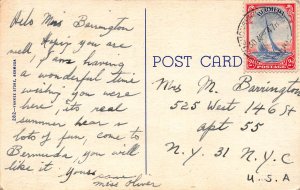 Helo Miss Barrington
Hopeing you are
well, I am having
a wonderful time
wishing you were
here, its real
summer hear &
lots of fun, come to
Bermuda you will
like it. yours
miss Oliver
POST CARD
BERMUDA
POSTAGE
Mrs M. Barrington
525 West 146 St
apt 55
N.Y. 31 N.Y.C
U.S.A